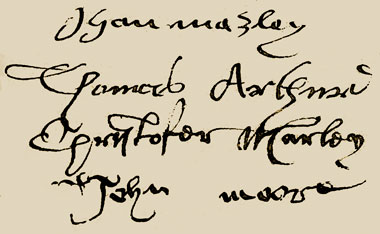 Jhan marley
Thomas Arthur
Christofer Marley
John moore